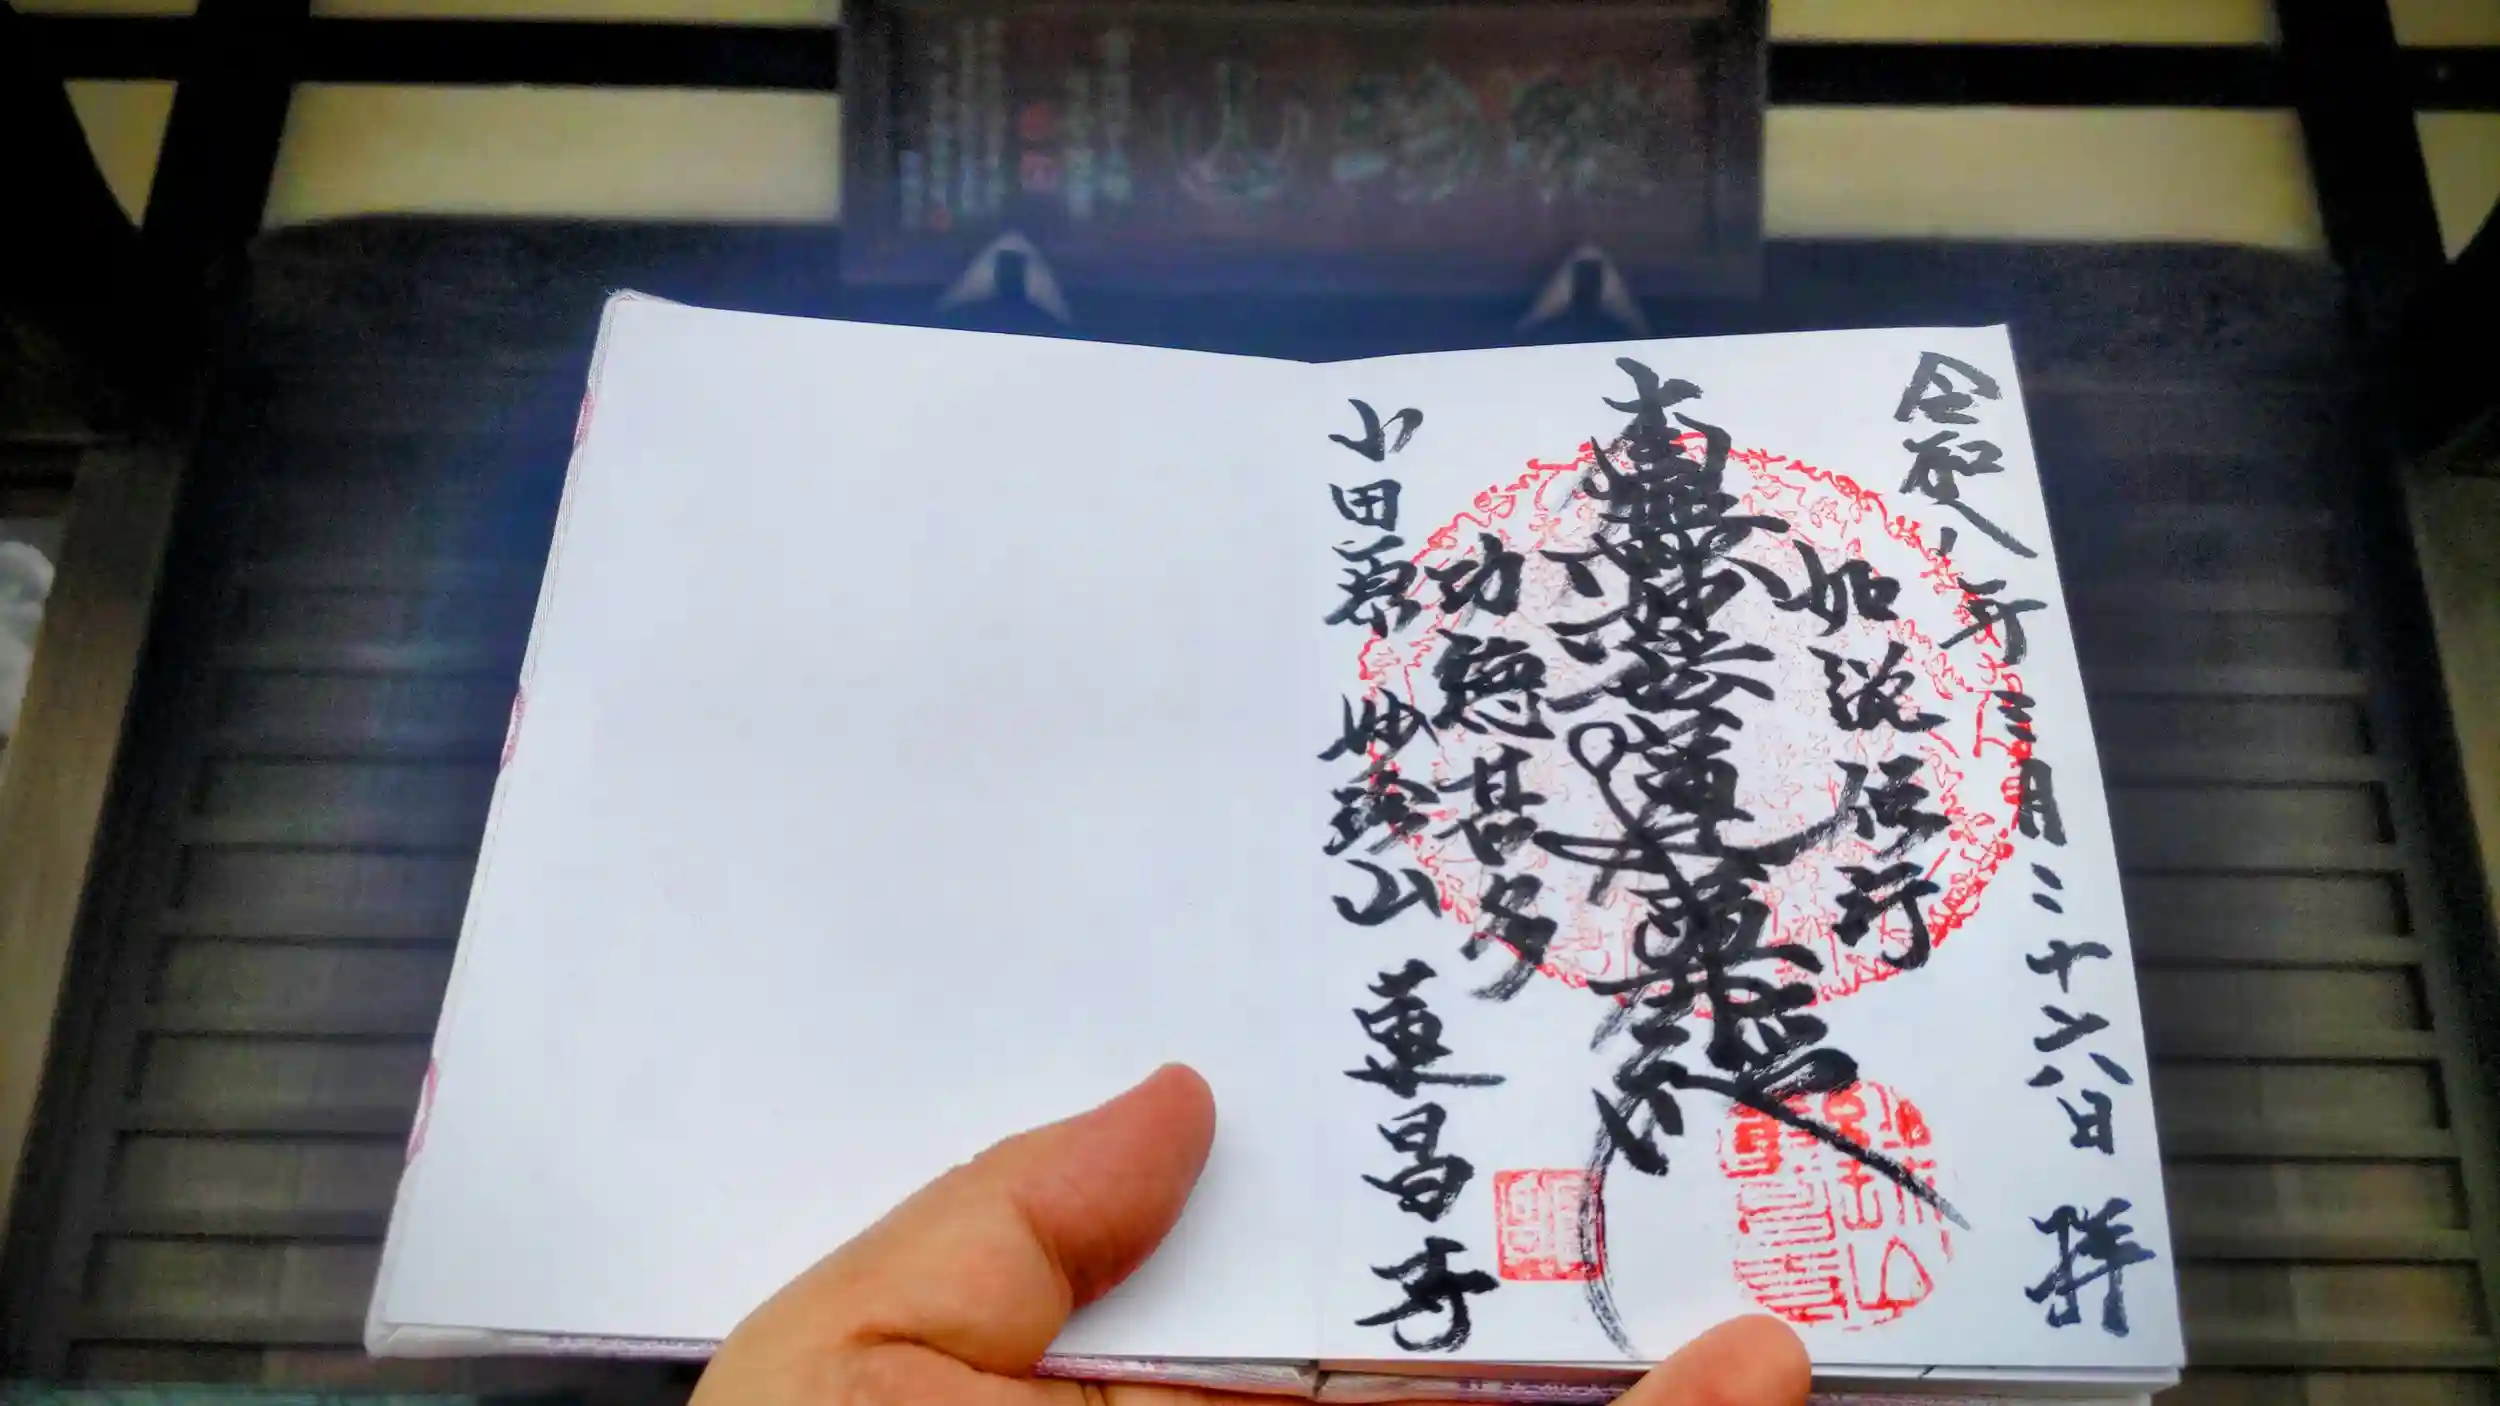 令和八年三月二十六日 拝
如説修行
南無妙法蓮華經
功徳甚多
小田原 妙珍山 蓮昌寺